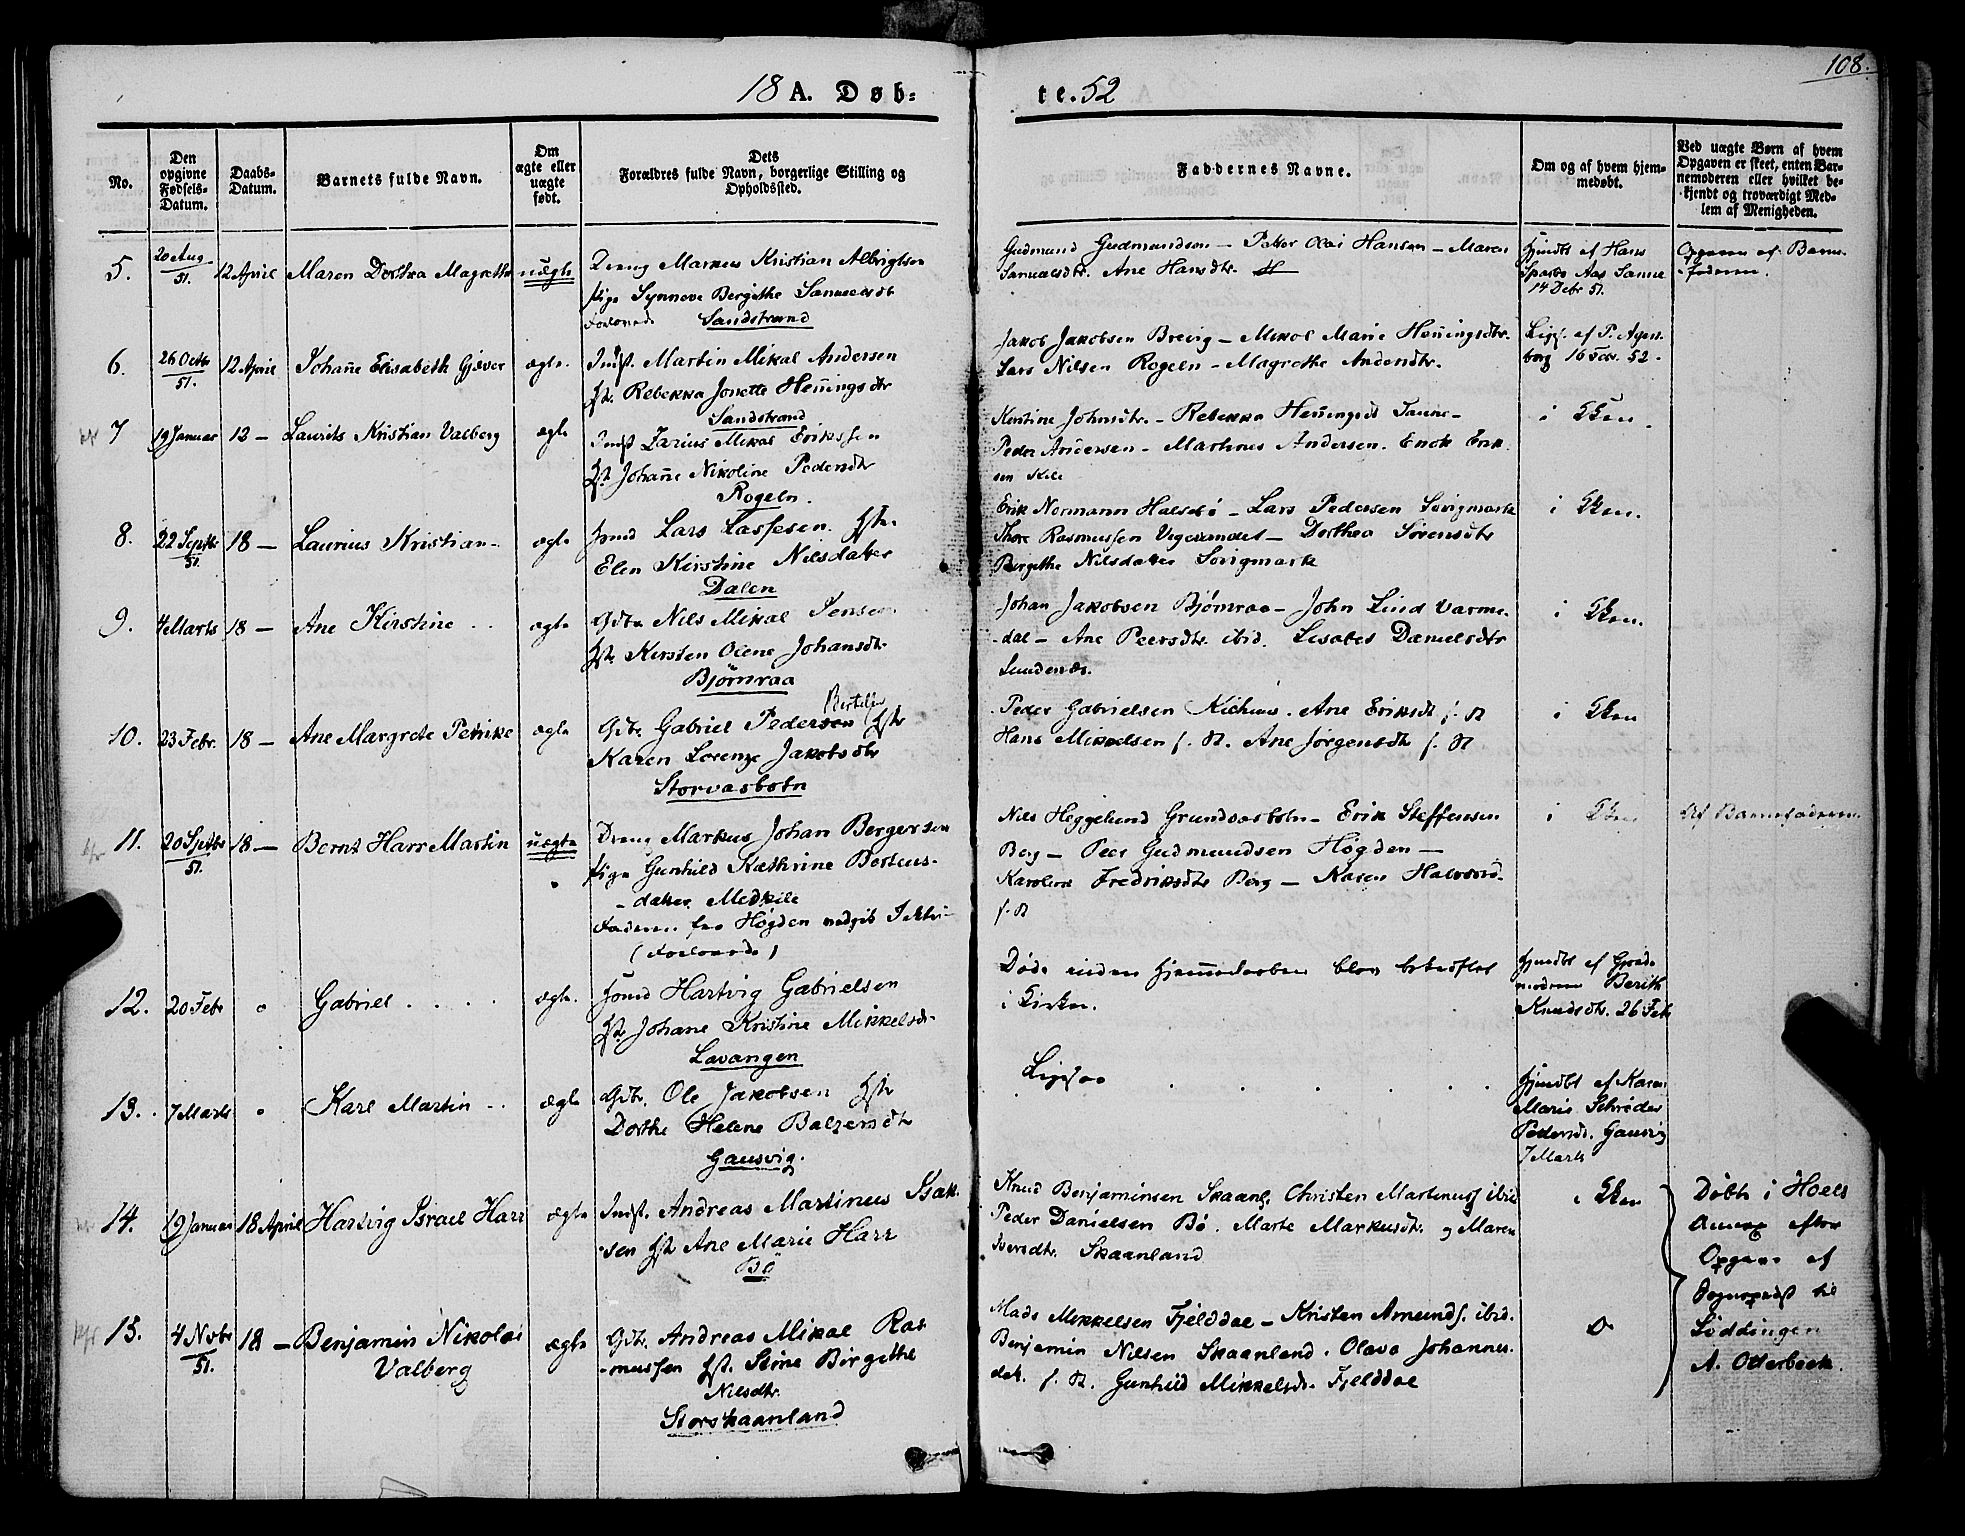 108.
18 A. Døb=
te. 52
No.
Den
opgivne
Fødsels-
Datum.
Daabs-
Datum.
Barnets fulde Navn.
Om
ægte eller
uægte
født.
Dets
Forældres fulde Navn, borgerlige Stilling og
Opholdssted.
Faddernes Navne.
Om og af hvem hjem-
medøbt.
Ved uægte Børn af hvem
Opgaven er skeet, enten Bar-
nemoderen eller hvilket be-
kjendt og troværdigt Med-
lem af Menigheden.
5.
20 Aug
51.
12 April
Maren Dorthea Magrethe
uægte
Dreng Markus Kristian Albrigtsen
Pige Synneve Bergithe Samuelsdt
Sandstrand
Gudmund Gudmundsen – Petter Olai Hansen – Maren
Samuelsdtr. Ane Hansdtr.
Hjmdbt af Hans
14 Debr 51.
Opgaven af Barne-
faderen.
6.
26 Octbr
51.
12 April
Johañe Elisabeth Gjæver
ægte.
Indst. Martin Mikal Andersen
Hstr. Rebekka Jonette Heñingsdtr
Sandstrand
Jakob Jakobsen Breivig – Mikol Marie Heñingsdtr.
Lars Nilsen Rogeln – Magrethe Andersdtr.
Ligs. af P. Agen
borg 16 52.
7
19 Januar
12 –
Laurits Kristian Valberg
ægte
Indst Zarius Mikal Erikssen
Hst Johañe Nikoline Pedersdtr
Rogeln.
Kerstine Johnsdtr. – Rebekka Heñingsdt
Peder Andersen – Martines Andersen. Enok Erik
sen Kile
i Kken.
8.
22 Septbr
51.
18 –
Laurius Kristian
ægte
Hmd Lars Lassesen. Hstr.
Elen Kirstine Nilsdatter
Dalen
Erik Normann – Lars Pedersen Sørigmark
Thore Rasmussen – Dorthea Sørensdtr
Bergithe Nilsdatter Sørigmark
i Kken.
9.
4 Marts
18 –
Ane Kirstine
ægte
Gdbr. Nils Mikal Jensen
Hstr. Kirsten Olene Johansdtr.
Bjørnraa
Johan Jakobsen Bjørnraa – John Lind Varme-
dal – Ane Peersdtr. ibid. Lisabet Danielsdtr
i Kken.
10.
23 Febr.
18 –
Ane Margrete Petrike
ægte
Bertels
Gdbr. Gabriel Pedersen Hstr
Karen Lorenze Jakobsdtr
Storvasbotn
Peder Gabrielsen. Ane Eriksdt
Hans Mikkelsen. Ane Jørgensdtr
i Kken
11.
20 Sptbr
51.
18 –
Bernt Harr Martin
uægte
Dreng Markus Johan Bergersen
Pige Gunhild Kathrine Berteus-
datter Medkile
(Forlovede)
Nils Heggelund Grundvasbotn – Erik Steffensen
Berg – Peer Gudmundsen Høgden –
Karoline Fredriksdtr Berg – Karen
i Kken
Af Barnefaderen.
12.
20 Febr
Gabriel
ægte.
Hmd Hartvig Gabrielsen
Hstr. Johane Kristine Mikkelsdt
Lavangen
Døde, inden Hjemmedaaben blev bekræftet
i Kirken.
Hjmdbt af Gjorde-
moderen Berith
Knudsdtr. 26 Feb
13.
7 Marts
Karl Martin
ægte
Gdbr. Ole Jakobsen Hstr
Dorthe Helene Balzersdtr
Gausvig.
Ligesaa
Hjmdbt af Karen
Marie Schrøder
Pedersdt. Gausvig
7 Marts
14.
19 Januar
18 April
Hartvig Israel Harr
ægte
Indst. Andreas Martinus Isak-
sen Hstr Ane Marie Harr
Bø
Knud Benjaminsen Skaanl. Christen Martinus ibid
Peder Danielsen Bø. Marte Markusdtr. og Maren
Skaanland
i Kken
Døbte i Hoels
Annex efter
Opgave af
Sognepræst til
Løddingen
A. Otterbeck.
15.
4 Nvbr
51.
18 –
Benjamin Nikolai
Valberg
ægte
Gdbr. Andreas Mikal Ras-
mussen Hstr. Stine Birgethe
Nilsdtr.
Storskaanland
Mads Mikkelsen Fjelddal – Kristen Amunds. ibid.
Benjamin Nilsen Skaanland. Olava Johannes-
dat. Gunhild Mikkelsdt. Fjelddal